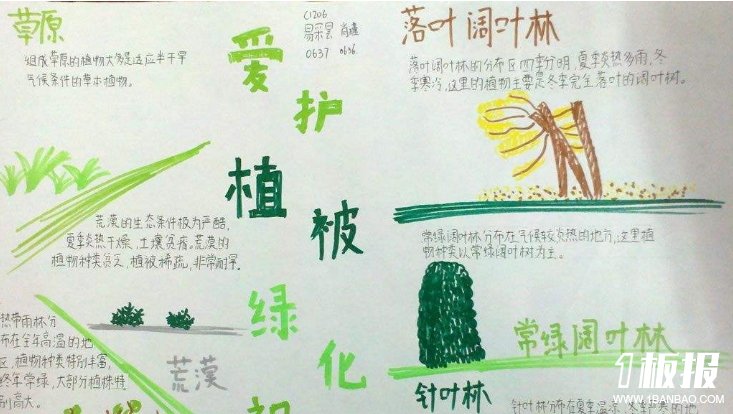 草原
组成草原的植物大多是适应半干旱
气候条件的草本植物。
C1206
易采昙 肖瑾
0637 0636
爱护植被绿化
落叶阔叶林
落叶阔叶林的分布区四季分明,夏季炎热多雨,冬
季寒冷,这里的植物主要是冬季完全落叶的阔叶树。
荒漠的生态条件极为严酷,
夏季炎热干燥,土壤贫瘠。荒漠的
植物种类贫乏,植被稀疏,非常耐旱。
荒漠
常绿阔叶林分布在气候较炎热的地方,这里植
物种类以常绿阔叶树为主。
常绿阔叶林
热带雨林分
布在全年高温的地
区,植物种类特别丰富,
终年常绿,大部分植株特
别高大。
针叶林
针叶林分布在夏季
1板报
WWW.1BANBAO.COM